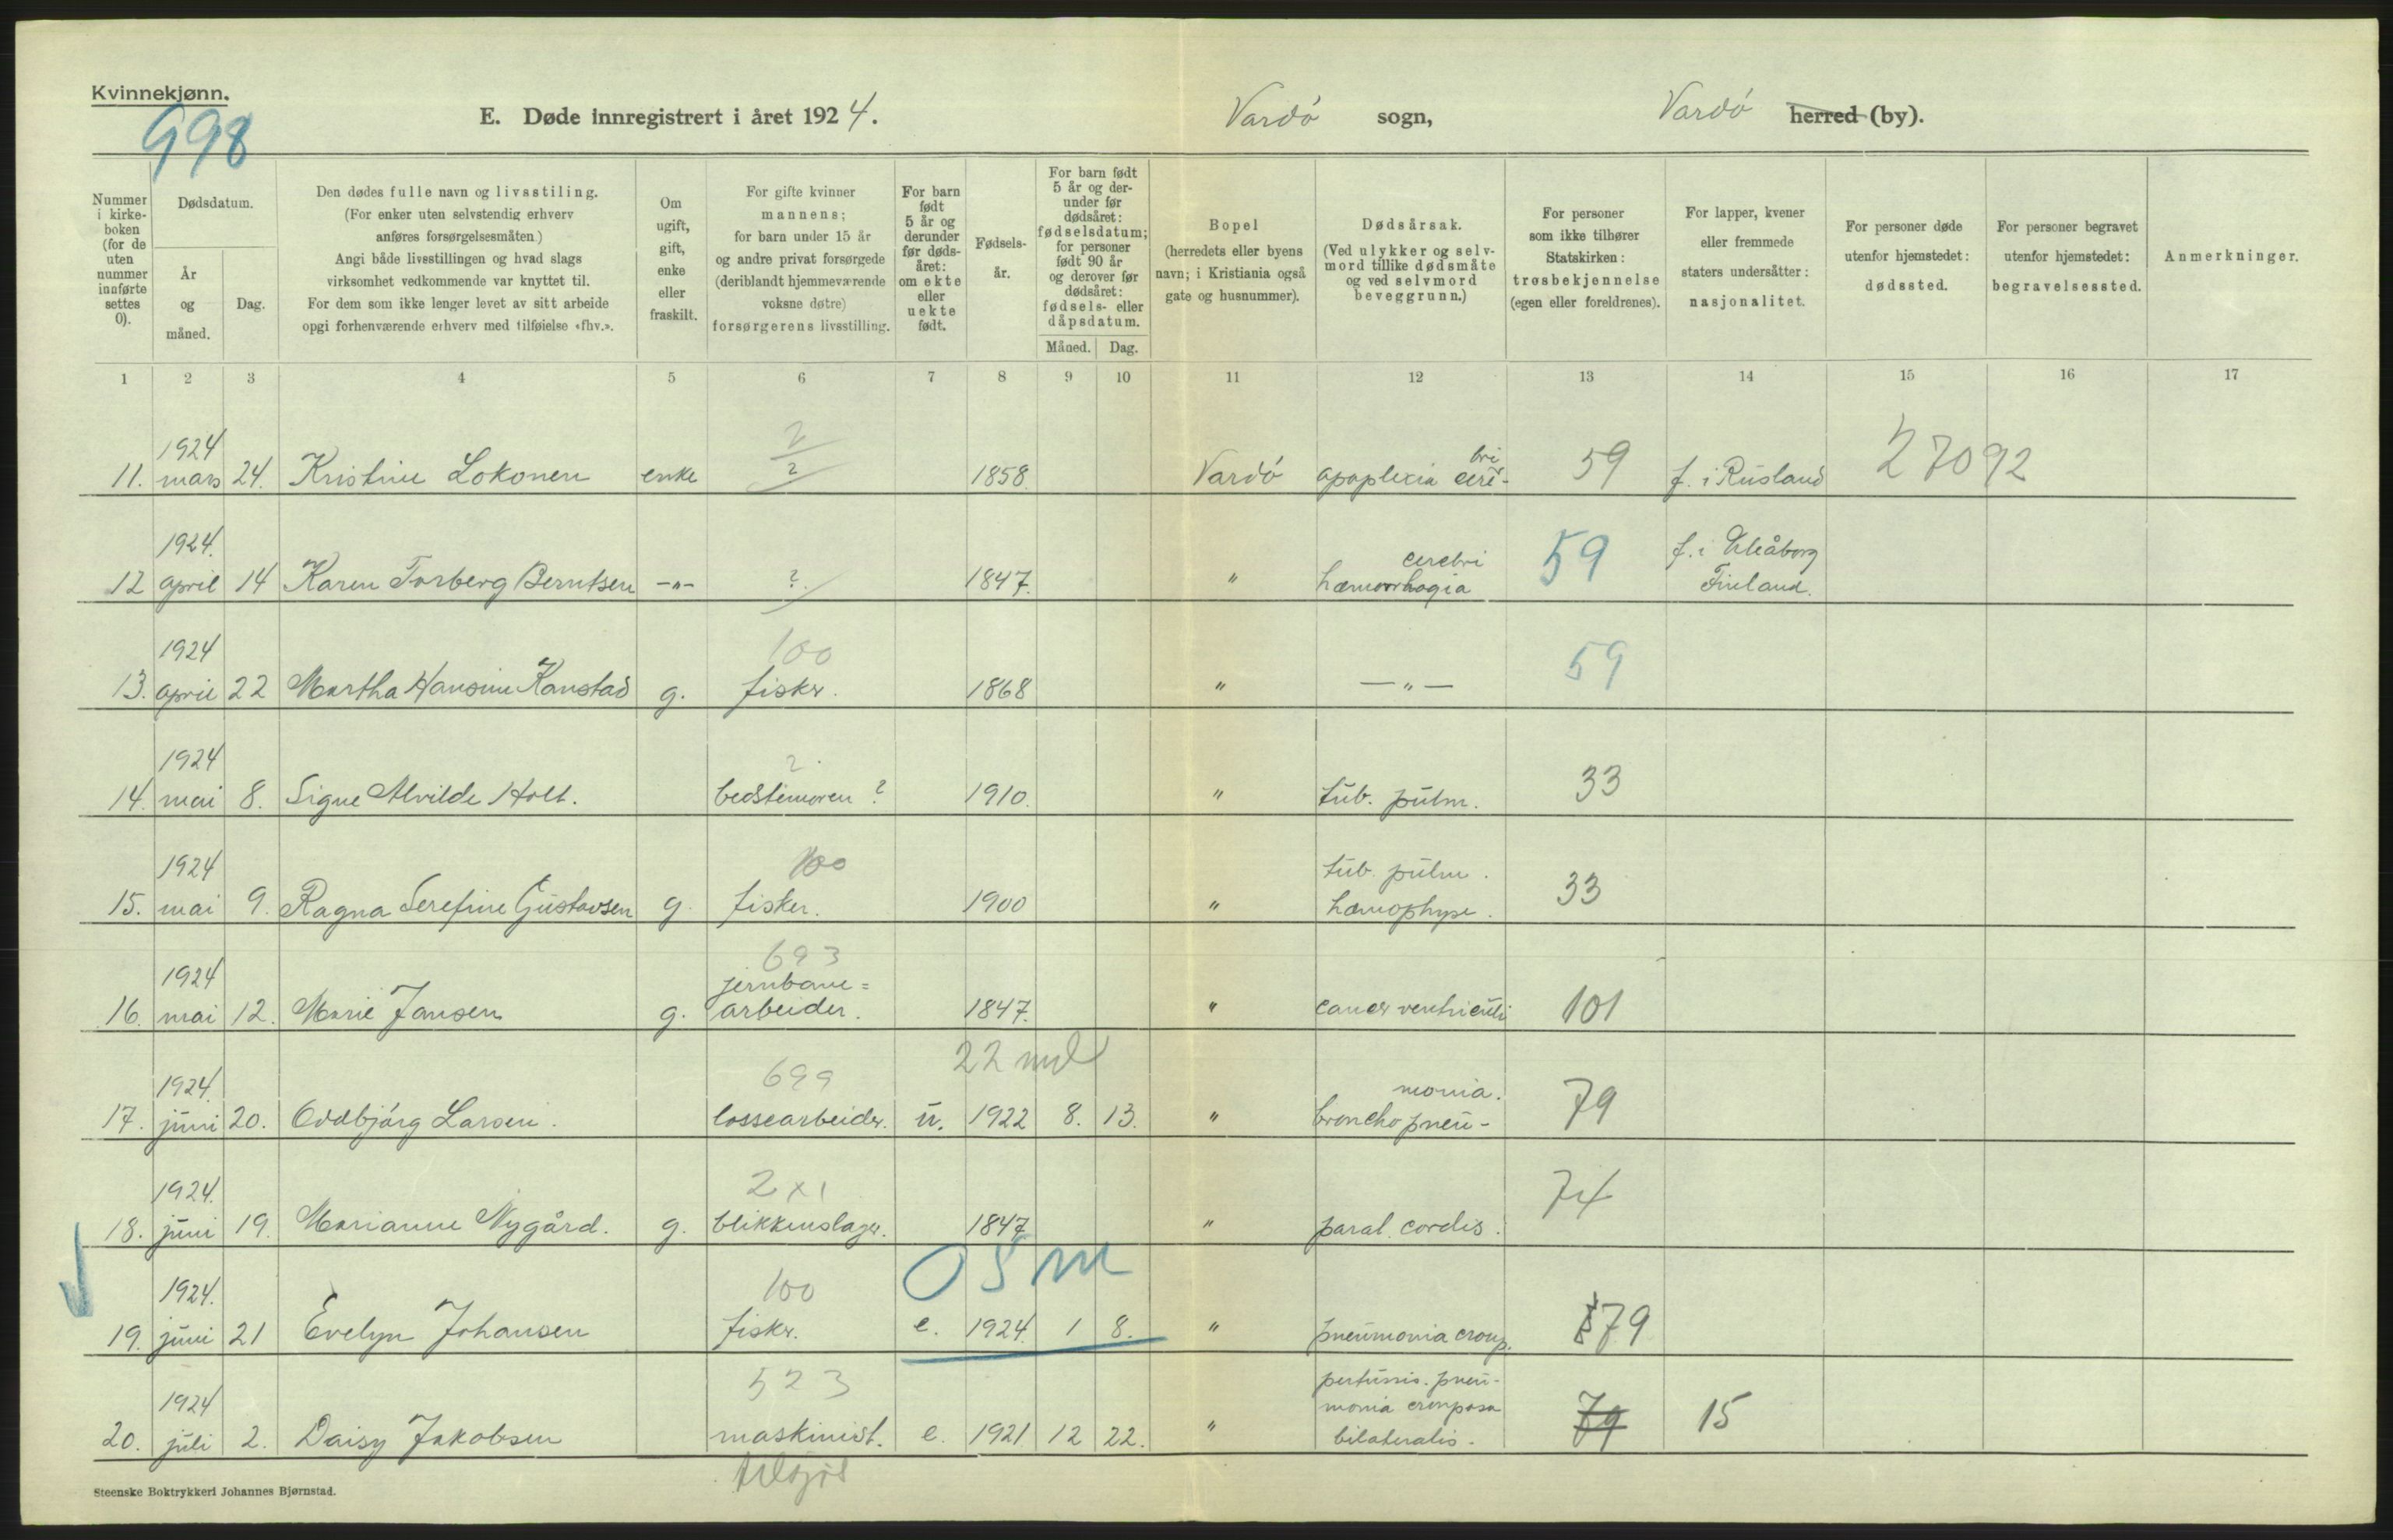 Kvinnekjønn.
998
E. Døde innregistrert i året 1924.
Vardö sogn,
Vardö herred (by).
Nummer i kirke- boken (for de uten nummer innførte settes 0).
Dødsdatum.
År og måned.
Dag.
Den dødes fulle navn og livsstiling.
(For enker uten selvstendig erhverv
anføres forsørgelsesmåten.)
Angi både livsstillingen og hvad slags
virksomhet vedkommende var knyttet til.
For dem som ikke lenger levet av sitt arbeide
opgi forhenværende erhverv med tilføielse «fhv.».
Om ugift, gift, enke eller fraskilt.
For gifte kvinner
mannens;
for barn under 15 år
og andre privat forsørgede
(deriblandt hjemmeværende
voksne døtre)
forsørgerens livsstilling.
For barn født 5 år og derunder før døds- året: om ekte eller uekte født.
Fødsels- år.
For barn født 5 år og der- under før dødsåret: fødselsdatum; for personer født 90 år og derover før dødsåret: fødsels- eller dåpsdatum.
Måned. Dag.
Bopel
(herredets eller byens
navn; i Kristiania også
gate og husnummer).
Dødsårsak.
(Ved ulykker og selv-
mord tillike dødsmåte
og ved selvmord
beveggrunn.)
For personer
som ikke tilhører
Statskirken:
trosbekjennelse
(egen eller foreldrenes).
For lapper, kvener
eller fremmede
staters undersåtter:
nasjonalitet.
For personer døde
utenfor hjemstedet:
dødssted.
For personer begravet
utenfor hjemstedet:
begravelsessted.
Anmerkninger.
1 2 3 4 5 6 7 8 9 10 11 12 13 14 15 16 17
1924 2 bri
11. mars 24. Kristine Lokonen enke ? 1858. Vardö apoplexia cere- 59 f. i Rusland 27092
1924. cerebri f. i Uleåborg
12 april 14 Karen Torberg Berntsen -"- ?. 1847. " hæmorrhagia 59 Finland.
1924 100
13. april 22 Martha Hansine Kanstad g. fisker. 1868 " -"- 59
1924 ?
14. mai 8. Signe Alvilde Holt. bedstemoren ? 1910. " tub. pulm. 33
1924 100 tub. pulm.
15. mai 9. Ragna Serefine Gustavsen g. fisker. 1900 " hæmophyse. 33
1924 693 jernbane=
16. mai 12. Marie Jansen g. arbeider. 1847. " cancer ventriculi 101
1924. 699 22 md monia.
17. juni 20. Oddbjörg Larsen. lossearbeider. u. 1922 8. 13. " bronchopneu- 79
1924. 2x1
18. juni 19. Marianne Nygård. g. blikkenslager. 1847 " paral. cordis. 74
1924. 100 05 m
19. juni 21 Evelyn Johansen fisker. e. 1924. 1 8. " pneumonia croup. 79
1924 523 pertussis. pneu-
monia crouposa
20. juli 2. Daisy Jakobsen maskinist. e. 1921 12 22. " bilateralis. 79 15
Steenske Boktrykkeri Johannes Bjørnstad.